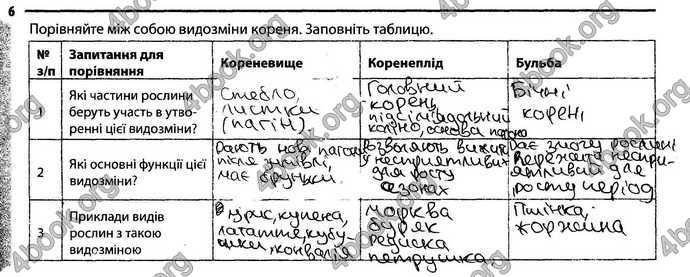 6
Порівняйте між собою видозміни кореня. Заповніть таблицю.
№ з/п
Запитання для порівняння
Кореневище
Коренеплід
Бульба
1
Які частини рослини
беруть участь в утво-
ренні цієї видозміни?
Стебло,
листки
(пагін)
Головний
корень,
підсім'ядольний
коліно, основа пагона
Бічні
корені
2
Які основні функції цієї
видозміни?
Дають нові пагони
після зимівлі,
має бруньки
Дозволяють вижити
у несприятливих
для росту
сезонах
Дає змогу рослині
пережити неспри-
ятливий для
росту період
3
Приклади видів
рослин з такою
видозміною
Ірис, купена,
латаття, кубу-
шки, конвалія
Морква
буряк
редиска
петрушка
Пшінка,
жоржина
4book.org